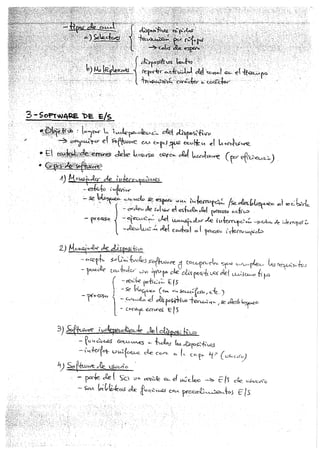 - Tipos de canal
a) Selectores
dispositivos rápidos
transmisión por ráfagas
→ colas de espera
b) Multiplexores
dispositivos lentos
repartir actividad del canal en el tiempo
transmisión carácter a carácter
3 - SOFTWARE DE E/S
• Objetivo : lograr la independencia del dispositivo
→ organizar el software en capas que oculten el hardware
• El control de errores debe hacerse cerca del hardware (por eficiencia)
• Capas de software
1) Manejador de interrupciones
- estrato inferior
- se bloquea cuando se espera una interrupción / se desbloquea al recibirla
- proceso
- orden de salvar el estado del proceso activo
- ejecución del manejador de interrupción
- devolución del control al proceso interrumpido
2) Manejador de dispositivo
- acepta solicitudes software y comprueba que se cumplen los requisitos
- puede controlar un grupo de dispositivos del mismo tipo
- proceso
- recibe petición E/S
- se bloquea (con semáforo, etc.)
- cuando el dispositivo termina, se desbloquea
- errores E/S
3) Software independiente del dispositivo
- funciones comunes a todos los dispositivos
- interfaz uniforme de cara a la capa 4ª (usuario)
4) Software de usuario
- parte del SO no reside en el núcleo → E/S de usuario
- son bibliotecas de funciones con procedimientos E/S